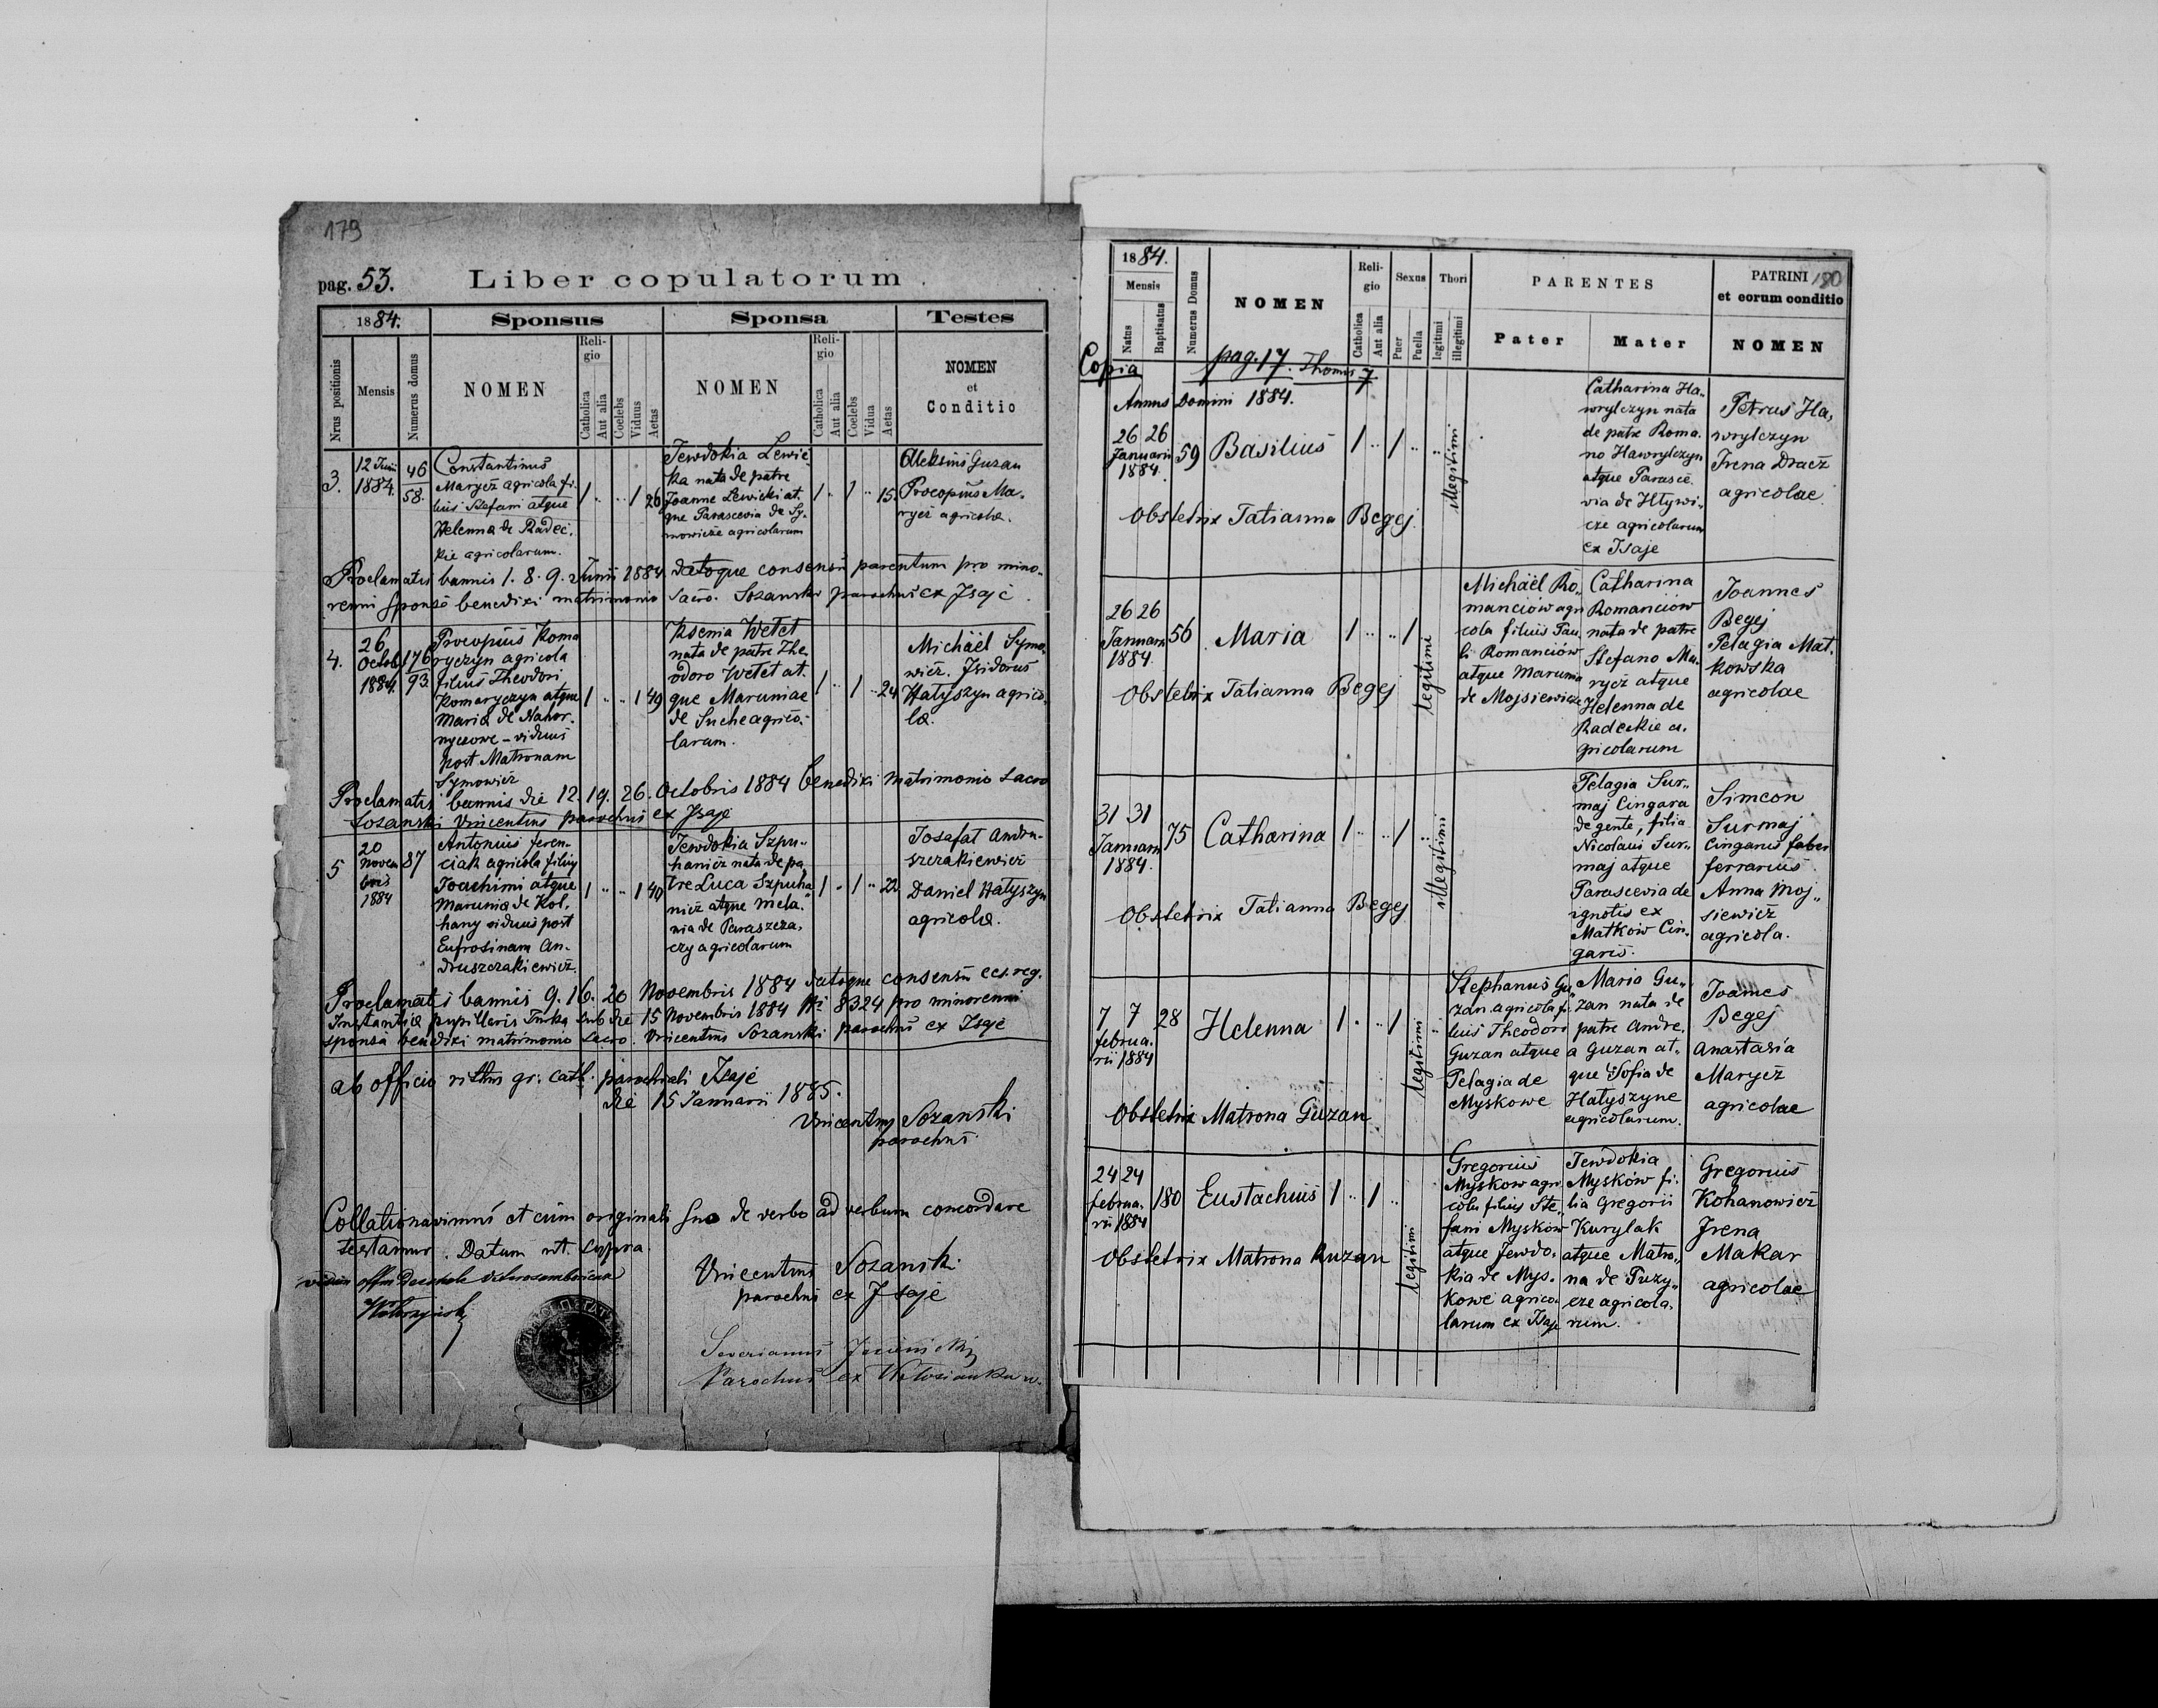 179
pag. 53. Liber copulatorum
1884. Sponsus Sponsa Testes
Nrus positionis
Mensis
Numerus domus
NOMEN
Religio
Catholica
Aut alia
Coelebs
Viduus
Aetas
NOMEN
Religio
Catholica
Aut alia
Coelebs
Vidua
Aetas
NOMEN
et
Conditio
3.
12 Junii
1884.
46
58.
Constantinus
Marycz agricola fi-
lius Stefani atque
Helenna de Radec-
kie agricolarum.
1 .. .. 1 26
Jewdokia Lewic-
ka nata de patre
Joanne Lewicki at-
que Parascevia de Sy-
mowicze agricolarum
1 .. 1 .. 15.
Aleksius Guzan
Procopius Ma-
rycz agricolae.
Proclamatis bannis 1. 8. 9. Junii 1884 datoque consensu parentum pro mino-
renni sponsa benedixi matrimonio sacro. Sozanski parochus ex Isaje.
4.
26
Octob.
1884.
176
93
Procopius Koma
ryczyn agricola
filius Theodori
Komaryczyn atque
Maria de Nahor-
nyczowe - viduus
post Matronam
Symowicz
1 .. .. 1 49
Ksenia Wetet
nata de patre The-
odoro Wetet at-
que Maruniae
de Suche agrico-
larum.
1 .. 1 .. 24
Michäel Symo-
wicz. Isidorus
Hatyszyn agrico-
lae.
Proclamatis bannis die 12. 19. 26. Octobris 1884 benedixi matrimonio sacro
Sozanski Vincentius parochus ex Isaje
5
20
Novem
bris
1884
87
Antonius Feren-
ciak agricola filius
Joachimi atque
Marunia de Kol-
hany viduus post
Eufrosinam An-
druszczakiewicz.
1 .. .. 1 40
Jewdokia Szpu-
hanicz nata de pa
tre Luca Szpuha
nicz atque Mela-
nia de Paraszcza-
czy agricolarum
1 .. 1 .. 22
Josafat Andru-
szczakiewicz
Daniel Hatyszyn
agricolae.
Proclamatis bannis 9. 16. 20 Novembris 1884 datoque consensu ces. reg.
Instantiae pupillaris Turka sub die 15 Novembris 1884 Nr 8324 pro minorenni
sponsa benedixi matrimonio sacro. Vincentius Sozanski parochus ex Isaje
ab officio ritus gr. cath. parochiali Isaje
die 15 Januarii 1885.
Vincentius Sozanski
parochus
Collationavimus et cum originali suo de verbo ad verbum concordare
testamur. Datum ut supra.
Vincentius Sozanski
parochus ex Isaje
Severianus
Parochus ex
180
1884.
Mensis
Natus
Baptisatus
Numerus Domus
NOMEN
Religio
Catholica
Aut alia
Sexus
Puer
Puella
Thori
legitimi
illegitimi
PARENTES
Pater Mater
PATRINI
et eorum conditio
NOMEN
Copia pag. 17. Thomus 7
Annus Domini 1884.
26 26
Januarii
1884.
59 Basilius 1 .. 1 .. ..
illegitimi
Catharina Ha-
wrylczyn nata
de patre Roma-
no Hawrylczyn
atque Parasce-
via de Htywi-
cze agricolarum
ex Isaje
Petrus Ha-
wrylczyn
Irena Dracz
agricolae
Obstetrix Tatianna Begej
26 26
Januarii
1884.
56 Maria 1 .. .. 1
legitimi
Michäel Ro-
manciów agri
cola filius Pau-
li Romanciów
atque Marunia
de Mojsiewicze
Catharina
Romanciów
nata de patre
Stefano Ma-
rycz atque
Helenna de
Radeckie a-
gricolarum
Joannes
Begej
Pelagia Mat-
kowska
agricolae
Obstetrix Tatianna Begej
31 31
Januarii
1884.
75 Catharina 1 .. .. 1 ..
illegitimi
Pelagia Sur-
maj Cingara
de gente, filia
Nicolaui Sur-
maj atque
Parascevia de
ignotis ex
Matków Cin-
garis.
Simeon
Surmaj
Cingarus faber
ferrarius.
Anna Moj-
siewicz
agricola.
Obstetrix Tatianna Begej
7 7
februa-
rii 1884
28 Helenna 1 .. .. 1
legitimi
Stephanus Gu-
zan agricola fi-
lius Theodori
Guzan atque
Pelagia de
Myskowe
Maria Gu-
zan nata de
patre Andre-
a Guzan at-
que Sofia de
Hatyszyne
agricolarum.
Joannes
Begej
Anastasia
Marycz
agricolae
Obstetrix Matrona Guzan
24 24
februa-
rii 1884
180 Eustachius 1 .. 1 ..
legitimi
Gregorius
Myskow agri
cola filius Ste-
fani Myskow
atque Jewdo-
kia de Mys-
kowe agrico-
larum ex Isaje
Jewdokia
Myskow fi-
lia Gregorii
Kurylak
atque Matro-
na de Puzy-
cze agricola-
rum.
Gregorius
Kohanowicz
Irena
Makar
agricolae
Obstetrix Matrona Guzan